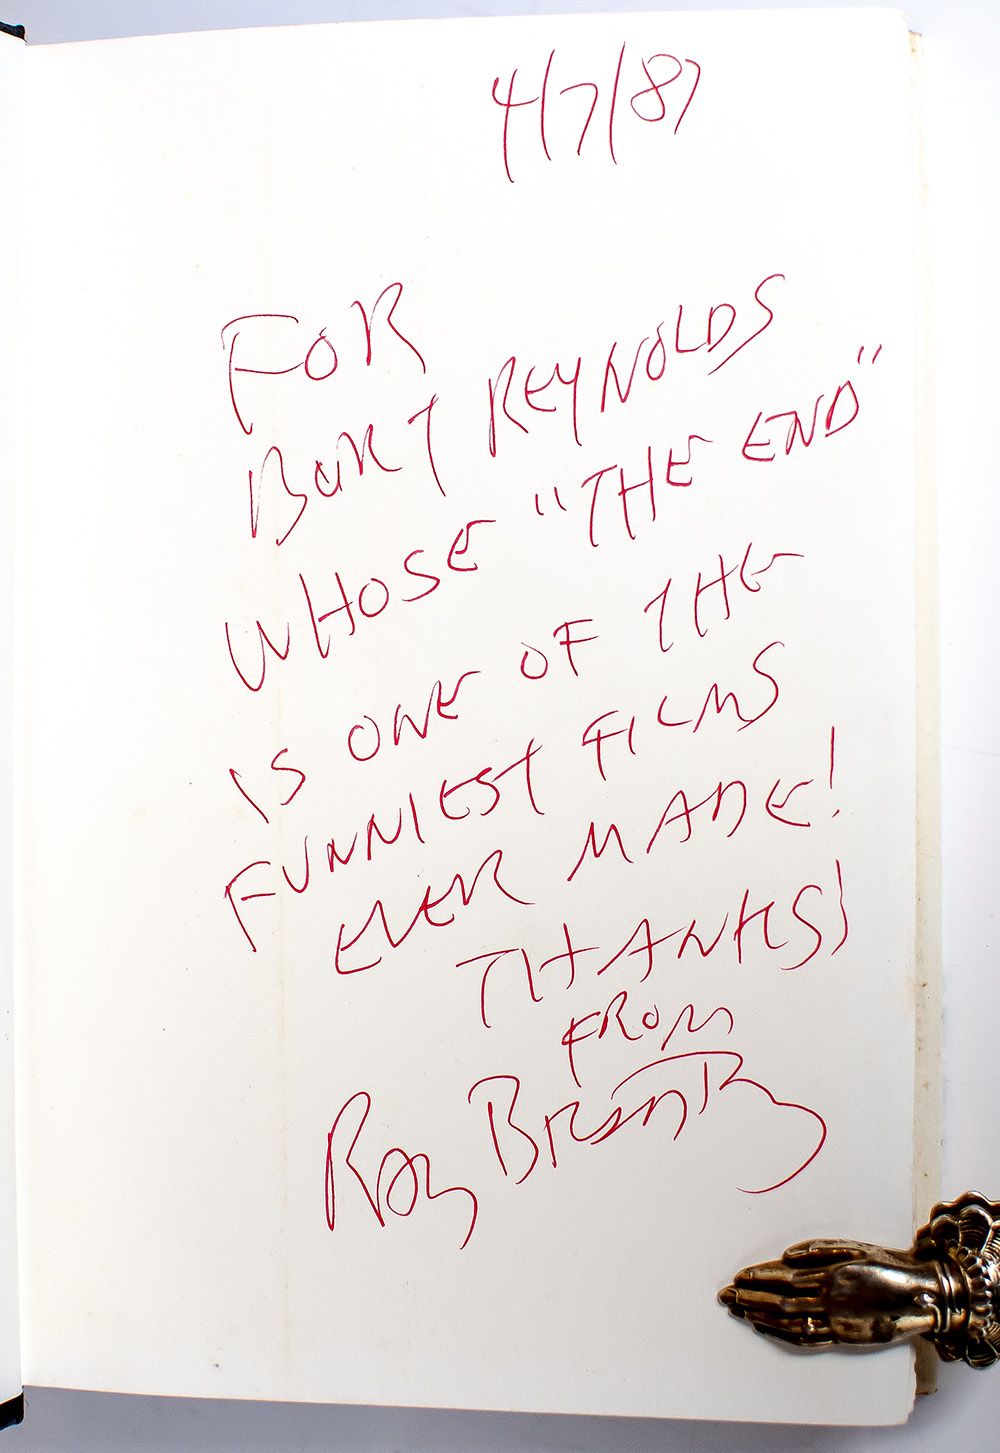 4/7/87
FOR
BURT REYNOLDS
WHOSE "THE END"
IS ONE OF THE
FUNNIEST FILMS
EVER MADE!
THANKS!
FROM
Ray Bradbury